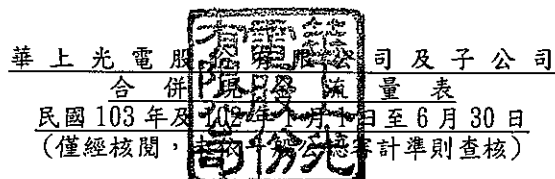 華上光電股份有限公司及子公司
合併現金流量表
民國103年及102年1月1日至6月30日
(僅經核閱，未依一般公認審計準則查核)
華上光電股份有限公司